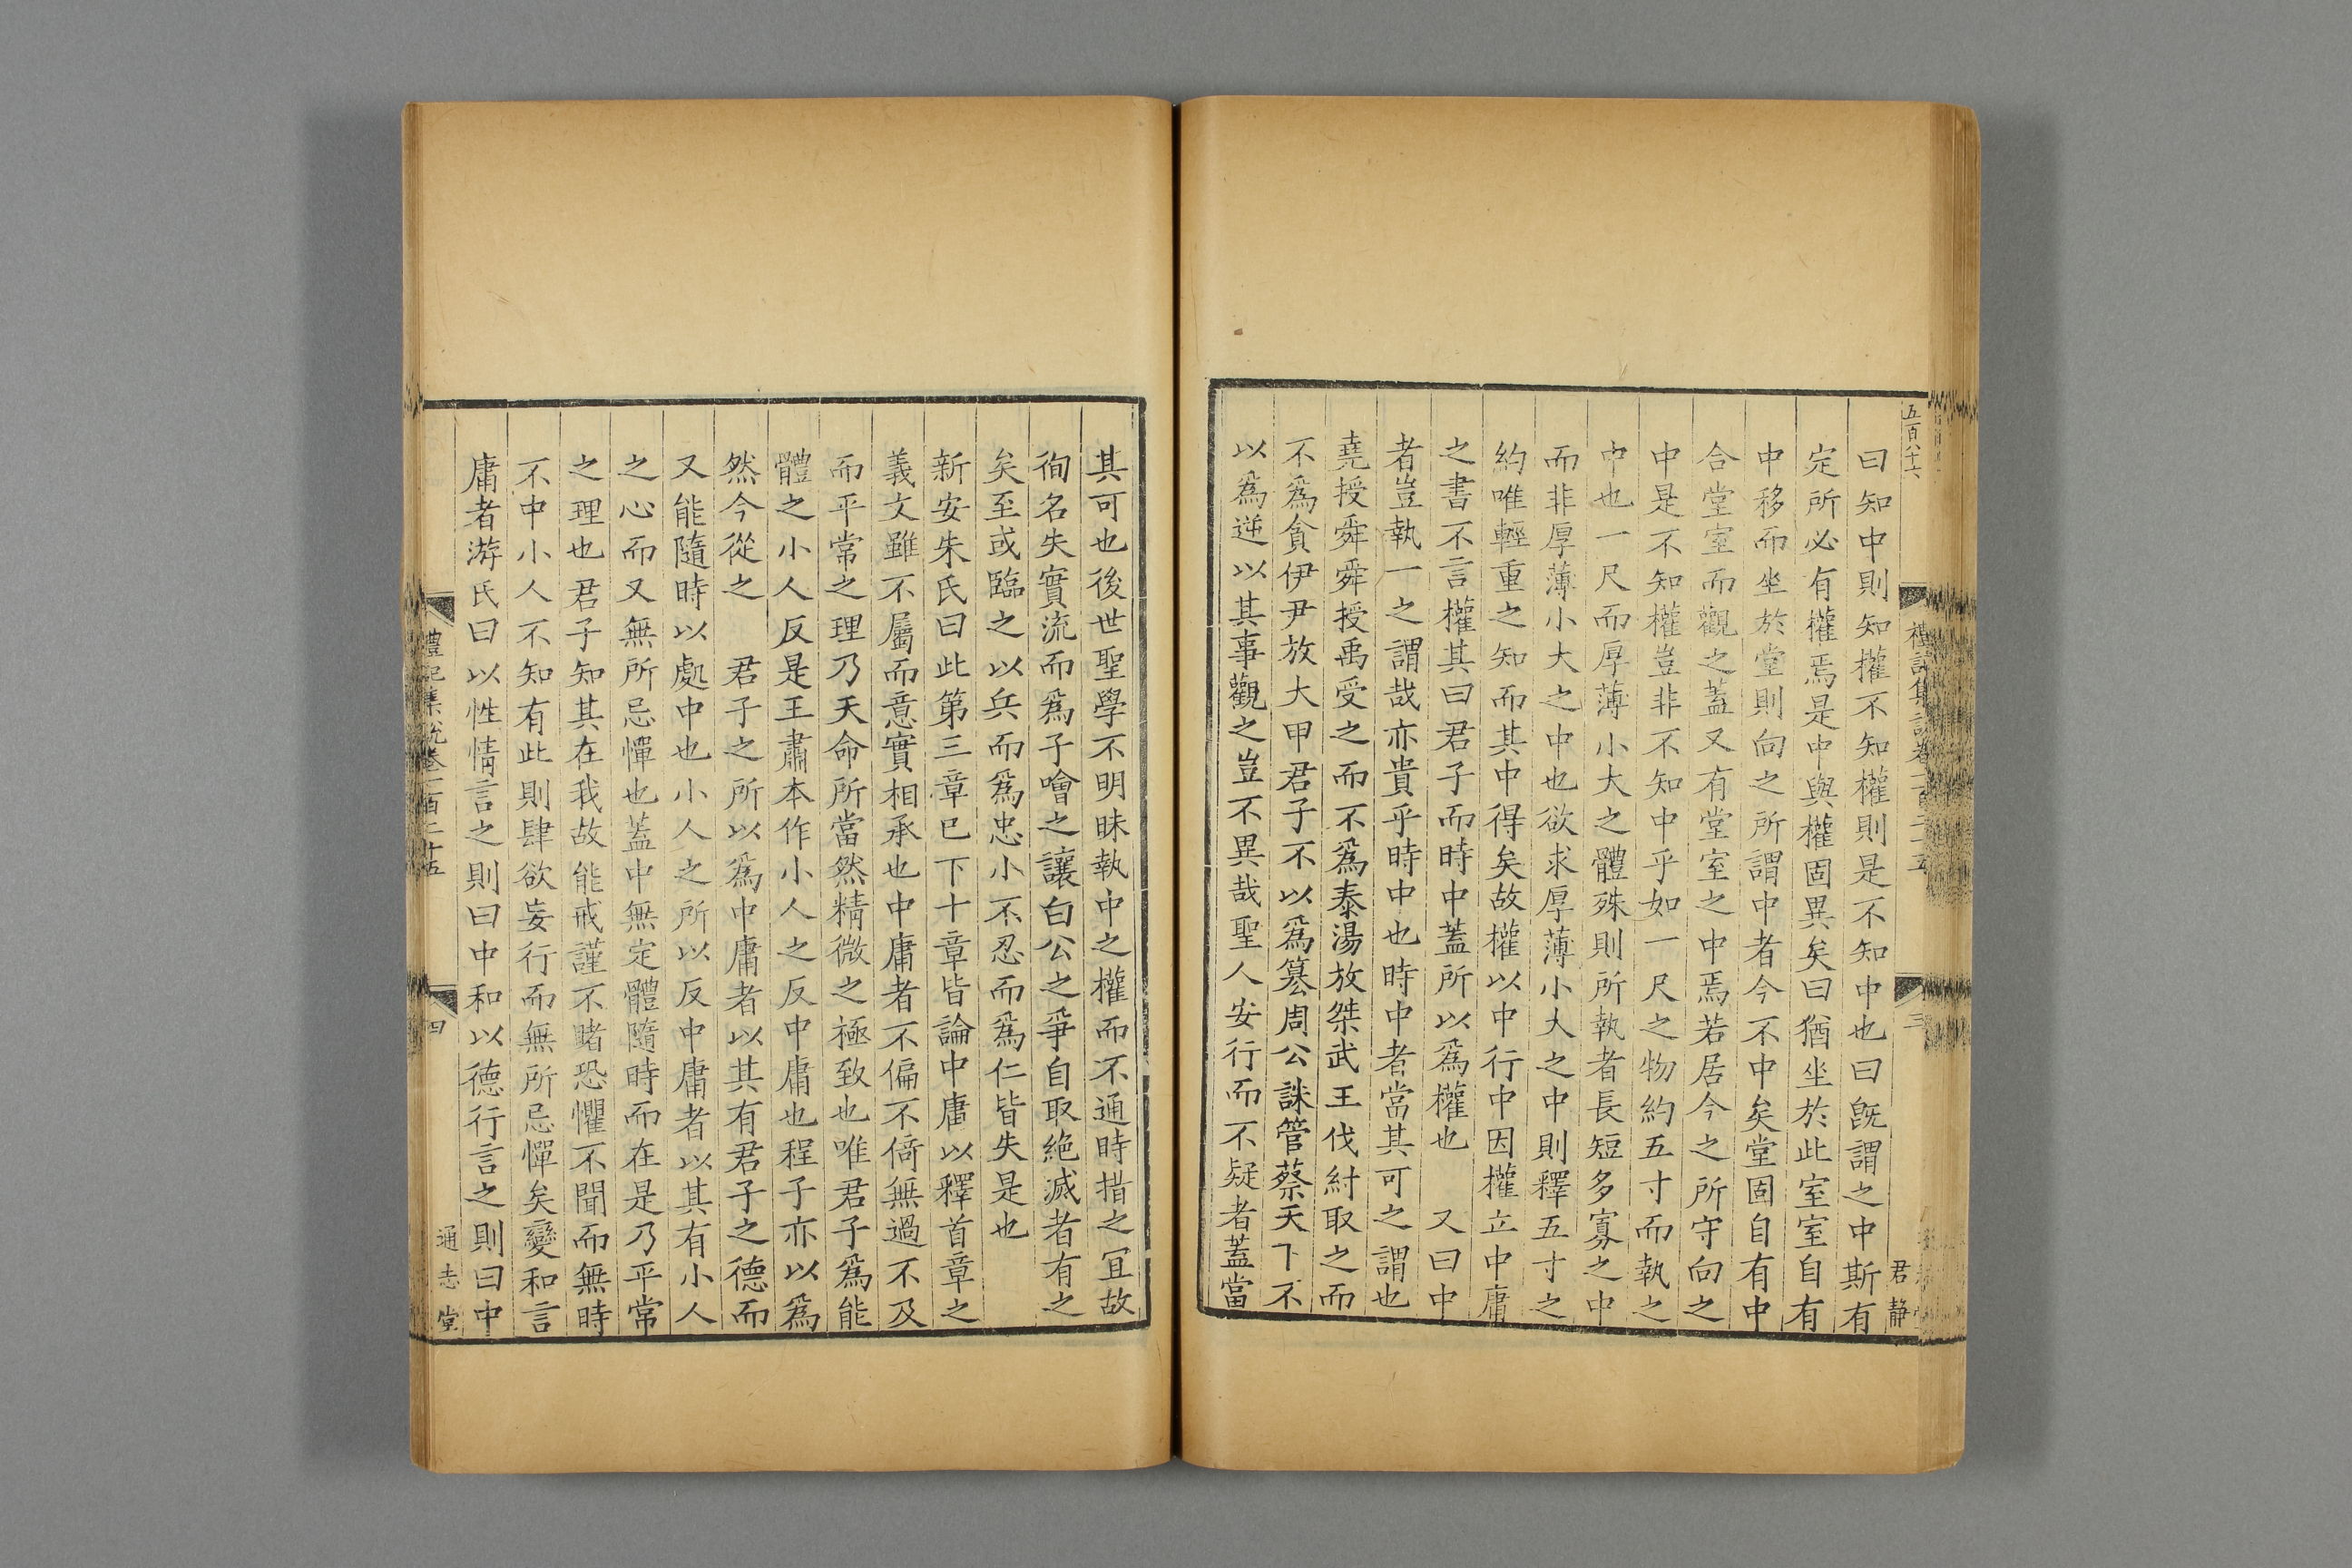 五百八十六
曰知中則知權不知權則是不知中也曰旣謂之中斯有
定所必有權焉是中與權固異矣曰猶坐於此室室自有
中移而坐於堂則向之所謂中者今不中矣堂固自有中
合堂室而觀之蓋又有堂室之中焉若居今之所守向之
中是不知權豈非不知中乎如一尺之物約五寸而執之
中也一尺而厚薄小大之體殊則所執者長短多寡之中
而非厚薄小大之中也欲求厚薄小大之中則釋五寸之
約唯輕重之知而其中得矣故權以中行中因權立中庸
之書不言權其曰君子而時中蓋所以爲權也 又曰中
者豈執一之謂哉亦貴乎時中也時中者當其可之謂也
堯授舜舜授禹受之而不爲泰湯放桀武王伐紂取之而
不爲貪伊尹放大甲君子不以爲簒周公誅管蔡天下不
以爲逆以其事觀之豈不異哉聖人安行而不疑者蓋當
禮記集說卷一百二十五
三
君靜
其可也後世聖學不明昧執中之權而不通時措之宜故
徇名失實流而爲子噲之讓白公之爭自取絶滅者有之
矣至或臨之以兵而爲忠小不忍而爲仁皆失是也
新安朱氏曰此第三章巳下十章皆論中庸以釋首章之
義文雖不屬而意實相承也中庸者不偏不倚無過不及
而平常之理乃天命所當然精微之極致也唯君子爲能
體之小人反是王肅本作小人之反中庸也程子亦以爲
然今從之 君子之所以爲中庸者以其有君子之德而
又能隨時以處中也小人之所以反中庸者以其有小人
之心而又無所忌憚也蓋中無定體隨時而在是乃平常
之理也君子知其在我故能戒謹不睹恐懼不聞而無時
不中小人不知有此則肆欲妄行而無所忌憚矣變和言
庸者游氏曰以性情言之則曰中和以德行言之則曰中
禮記集說卷一百二十五
四
通志堂